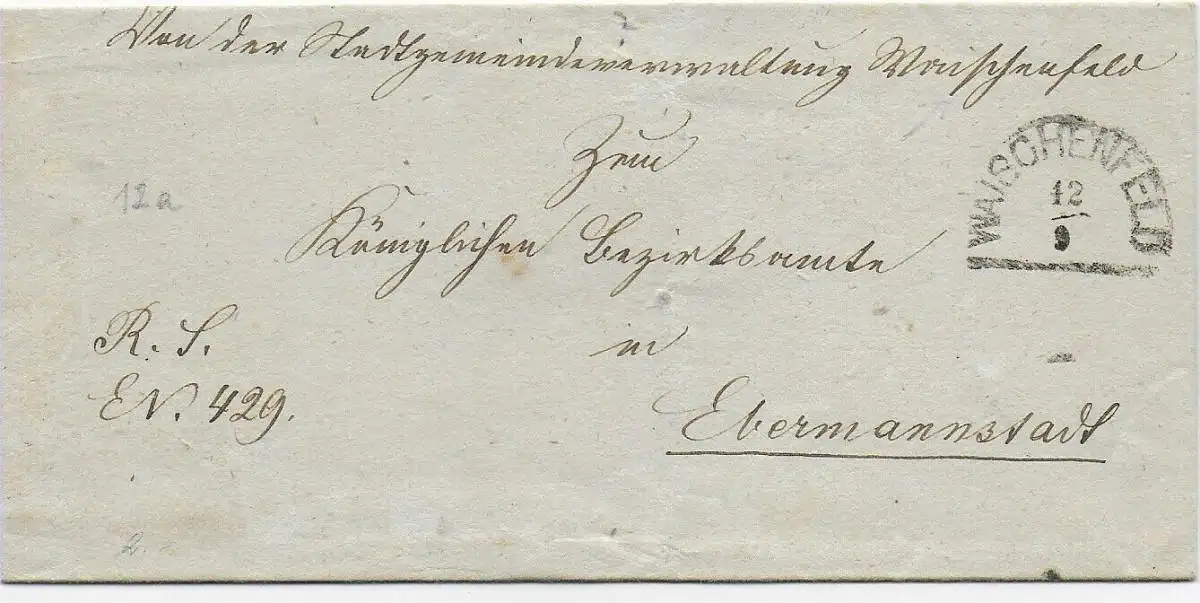 Von der Stadtgemeindeverwaltung Waischenfeld
Zum
Königlichen Bezirksamte
in
Ebermannstadt
R. S.
E N. 429.
WAISCHENFELD
12
9
12a
2.